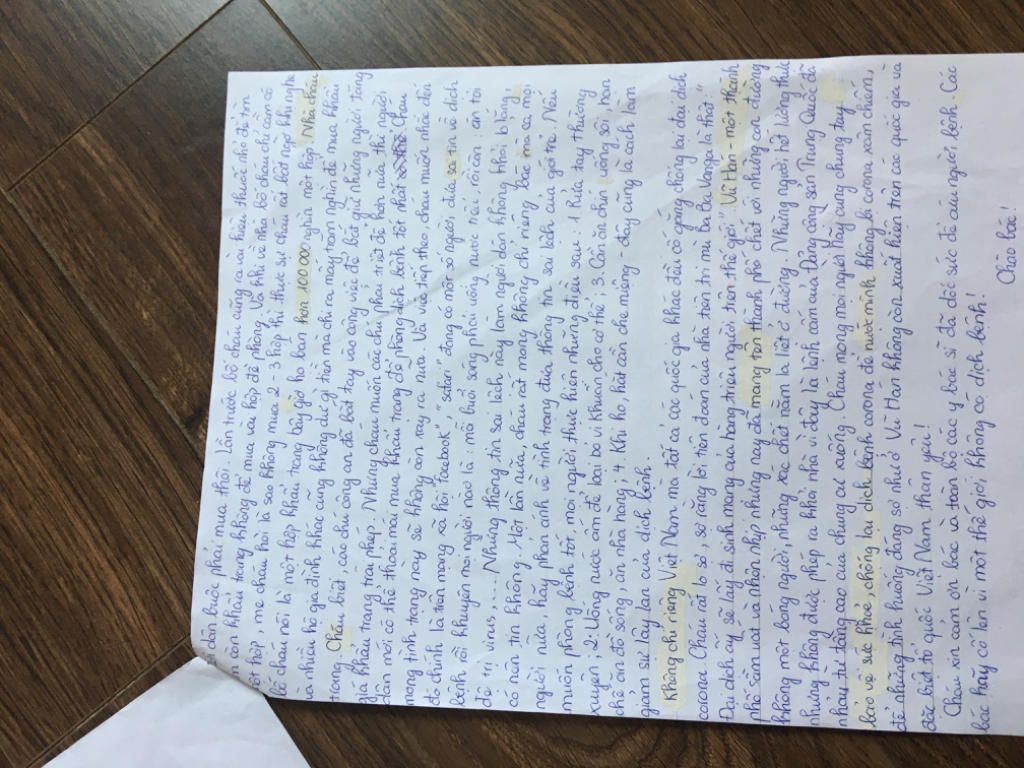 dân buộc phải mua thôi. Lần trước bố cháu cũng ra vài hiệu thuốc nhỏ để tìm
còn khẩu trang không để mua vài hộp để phòng. Và khi về nhà bố cháu chỉ cầm có
một hộp, mẹ cháu hỏi là sao không mua 2 - 3 hộp thì thực sự cháu rất bất ngờ khi nghe
bố cháu nói là một hộp khẩu trang bây giờ họ bán hơn 100000 nghìn một hộp. Nhà cháu
và nhiều hộ gia đình khác cũng không dư giả tiền mà chi ra mấy trăm nghìn để mua khẩu
trang. Cháu biết, các chú công an đã bắt tay vào công việc để bắt giữ những người tăng
giá khẩu trang trái phép. Nhưng cháu muốn các chú phải triệt để hơn nữa thì người
dân mới có thể thoải mái mua khẩu trang để phòng dịch bệnh tốt nhất Cháu
mong tình trạng này sẽ không còn xảy ra nữa. Và vấn đề tiếp theo, cháu muốn nhắc đến
đó chính là trên mạng xã hội "Facebook", "zalo", đang có một số người đưa sai tin về dịch
bệnh rồi khuyên mọi người nào là: mỗi buổi sáng phải uống nước tiểu, rồi cần ăn tỏi
để trị virus,.... Những thông tin sai lệch này làm người dân không khỏi băng
có nên tin không. Một lần nữa, cháu rất mong không chỉ riêng bác mà cả mọi
người nữa, hãy phản ánh về tình trạng đưa thông tin sai lệch của gỡ ra. Nếu
muốn phòng bệnh tốt, mọi người thực hiện những điều sau: 1. Rửa tay thường
xuyên; 2. Uống nước ấm để loại bỏ vi khuẩn cho cơ thể; 3. Cần ăn chín uống sôi, hạn
chế ăn đồ sống, ăn nhà hàng; 4. Khi ho, hắt cần che miệng - đây cũng là cách làm
giảm sự lây lan của dịch bệnh.
Không chỉ riêng Việt Nam mà tất cả các quốc gia khác đều cố gắng chống lại đại dịch
corona. Cháu rất lo sợ, sợ rằng lời tiên đoán của nhà tiên tri mù Bà Ba Vanga là thật "
Đại dịch ấy sẽ lấy đi sinh mạng của hàng triệu người trên thế giới". Vũ Hán - một thành
phố sầm uất và nhộn nhịp, nhưng nay đây mang tên thành phố chết với những con đường
không một bóng người, những xác chết nằm la liệt ở đường. Những người hết lương thực
nhưng không được phép ra khỏi nhà vì đây là lệnh cấm của Đảng cộng sản Trung Quốc đã
nhảy từ tầng cao của chung cư xuống. Cháu mong mọi người hãy cùng chung tay
bảo vệ sức khỏe, chống lại dịch bệnh corona để nước mình không bị corona xâm chiếm,
để những tình huống đáng sợ như ở Vũ Hán không còn xuất hiện trên các quốc gia và
đặc biệt tổ quốc Việt Nam thân yêu!
Cháu xin cảm ơn bác và toàn bộ các y bác sĩ đã dốc sức để cứu người bệnh. Các
bác hãy cố lên vì một thế giới không có dịch bệnh!
Chào bác!